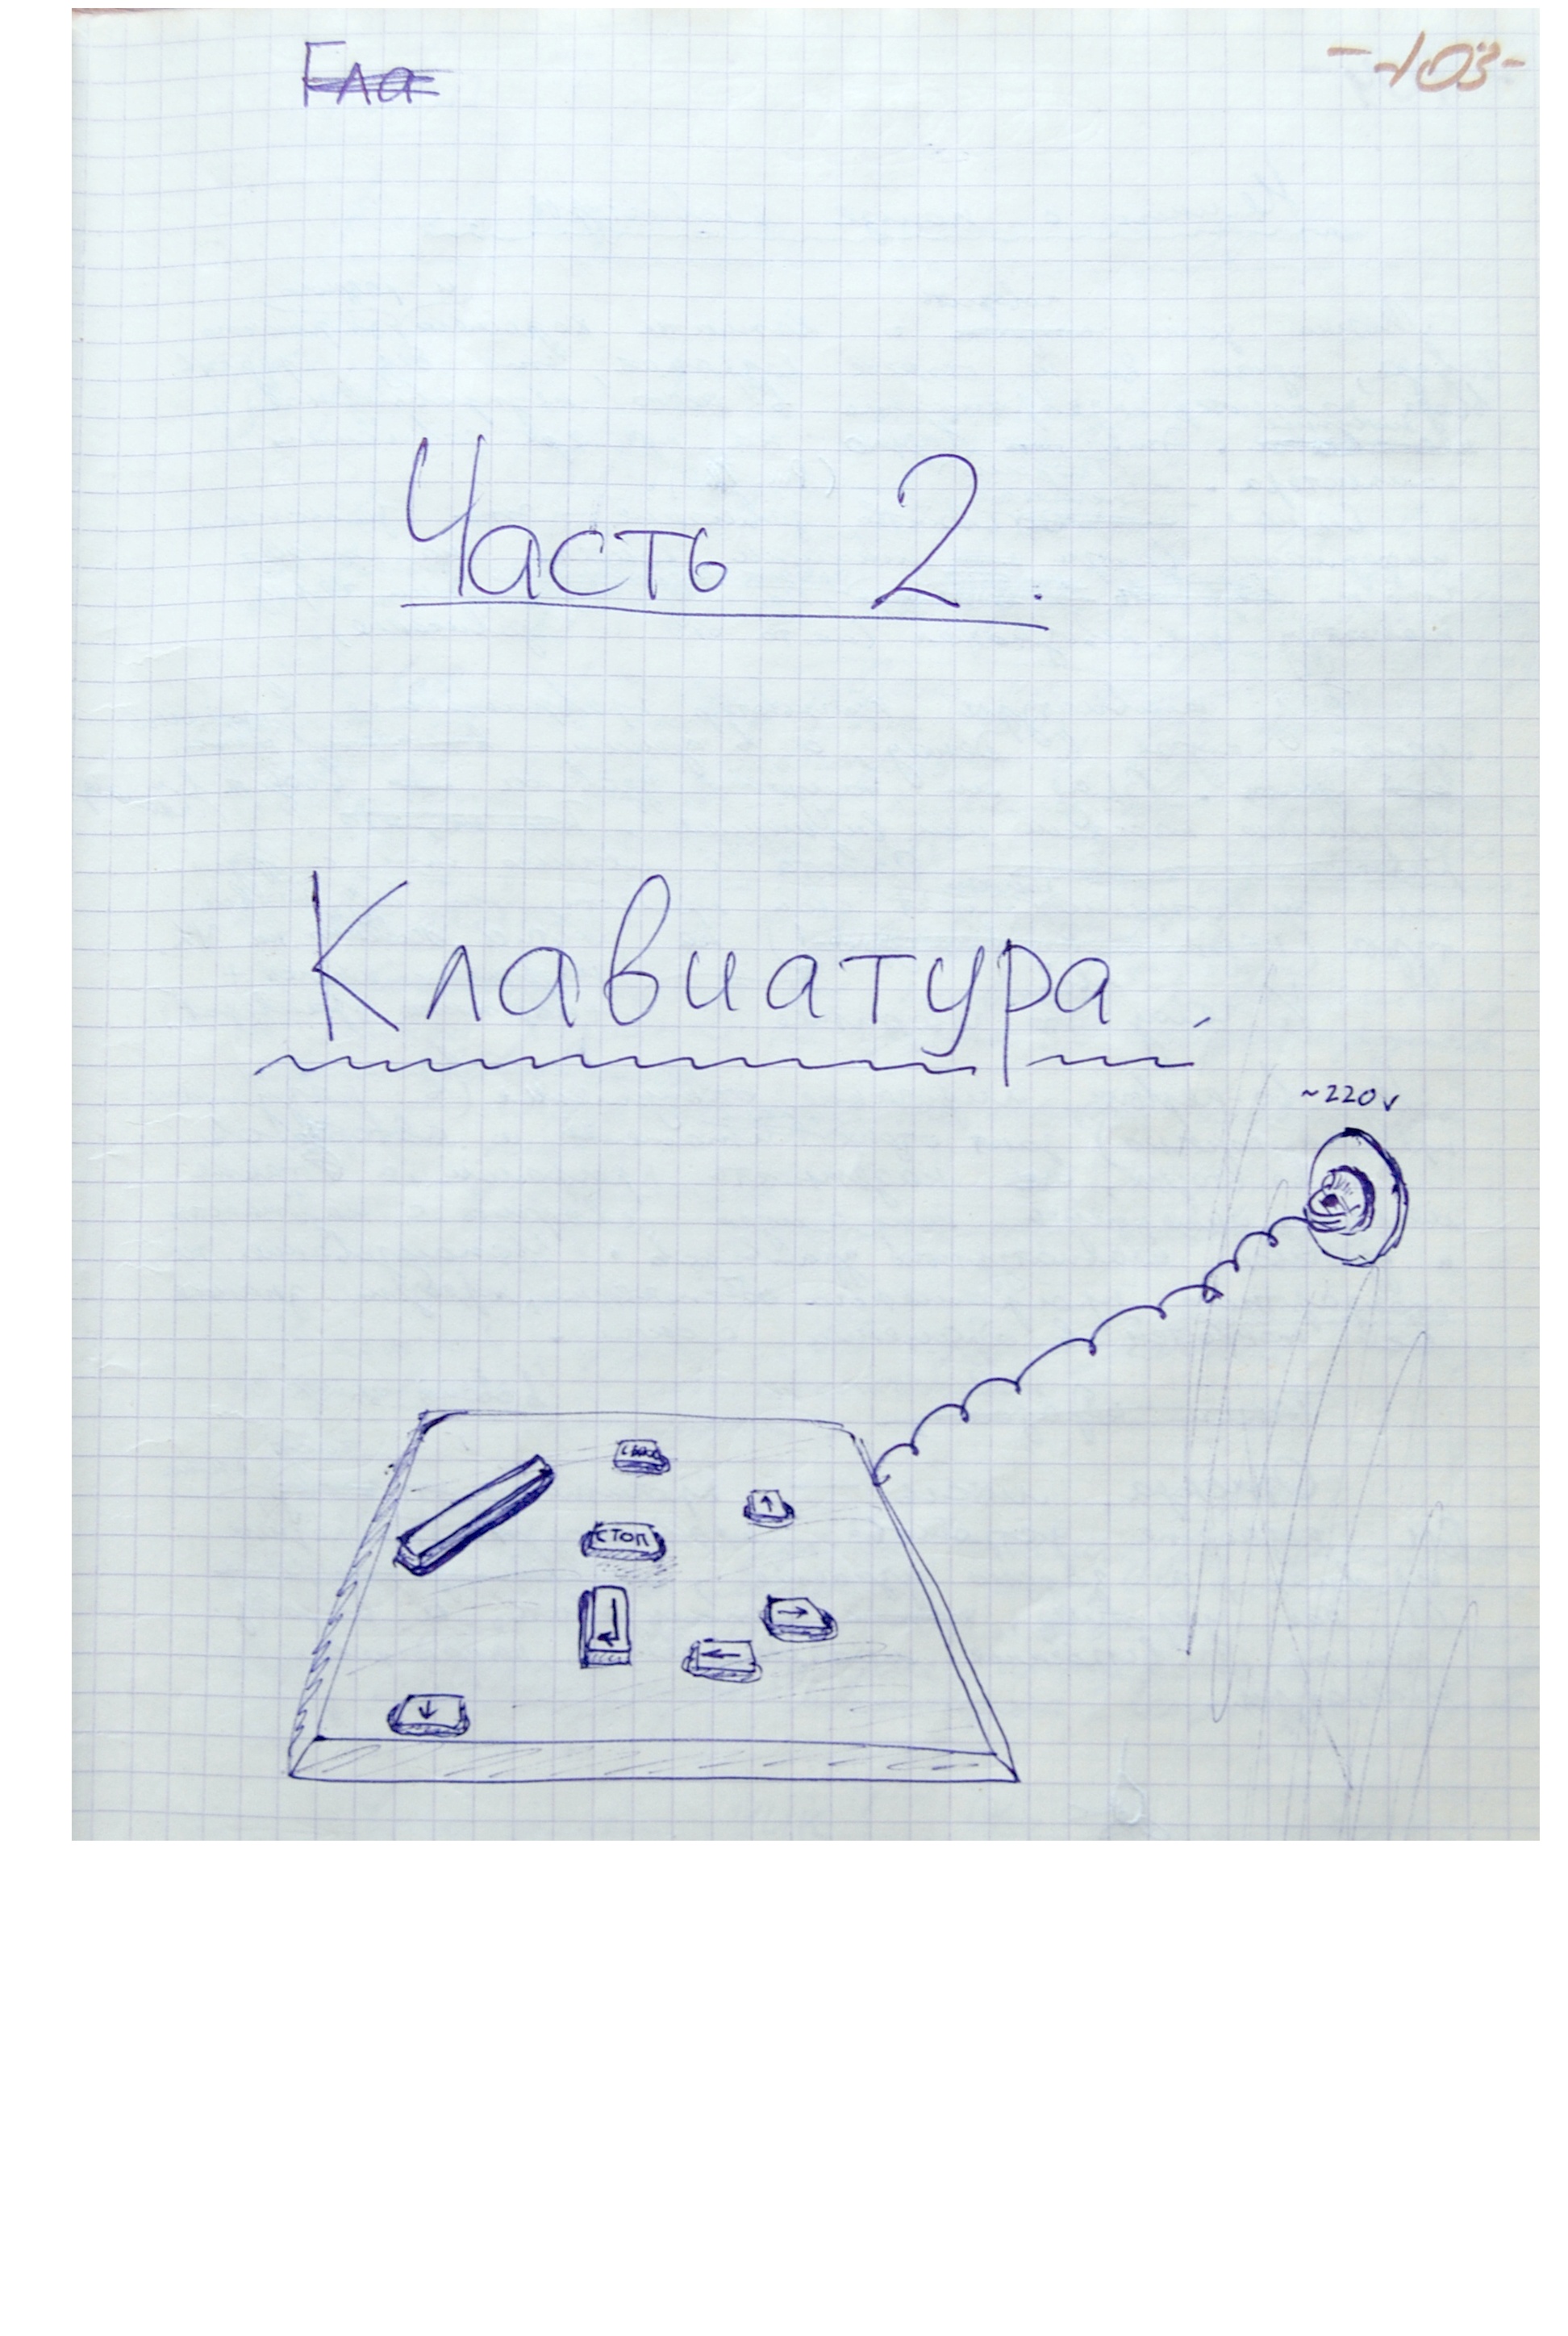 Гла
-103-
Часть 2.
Клавиатура.
~220v
СТОП